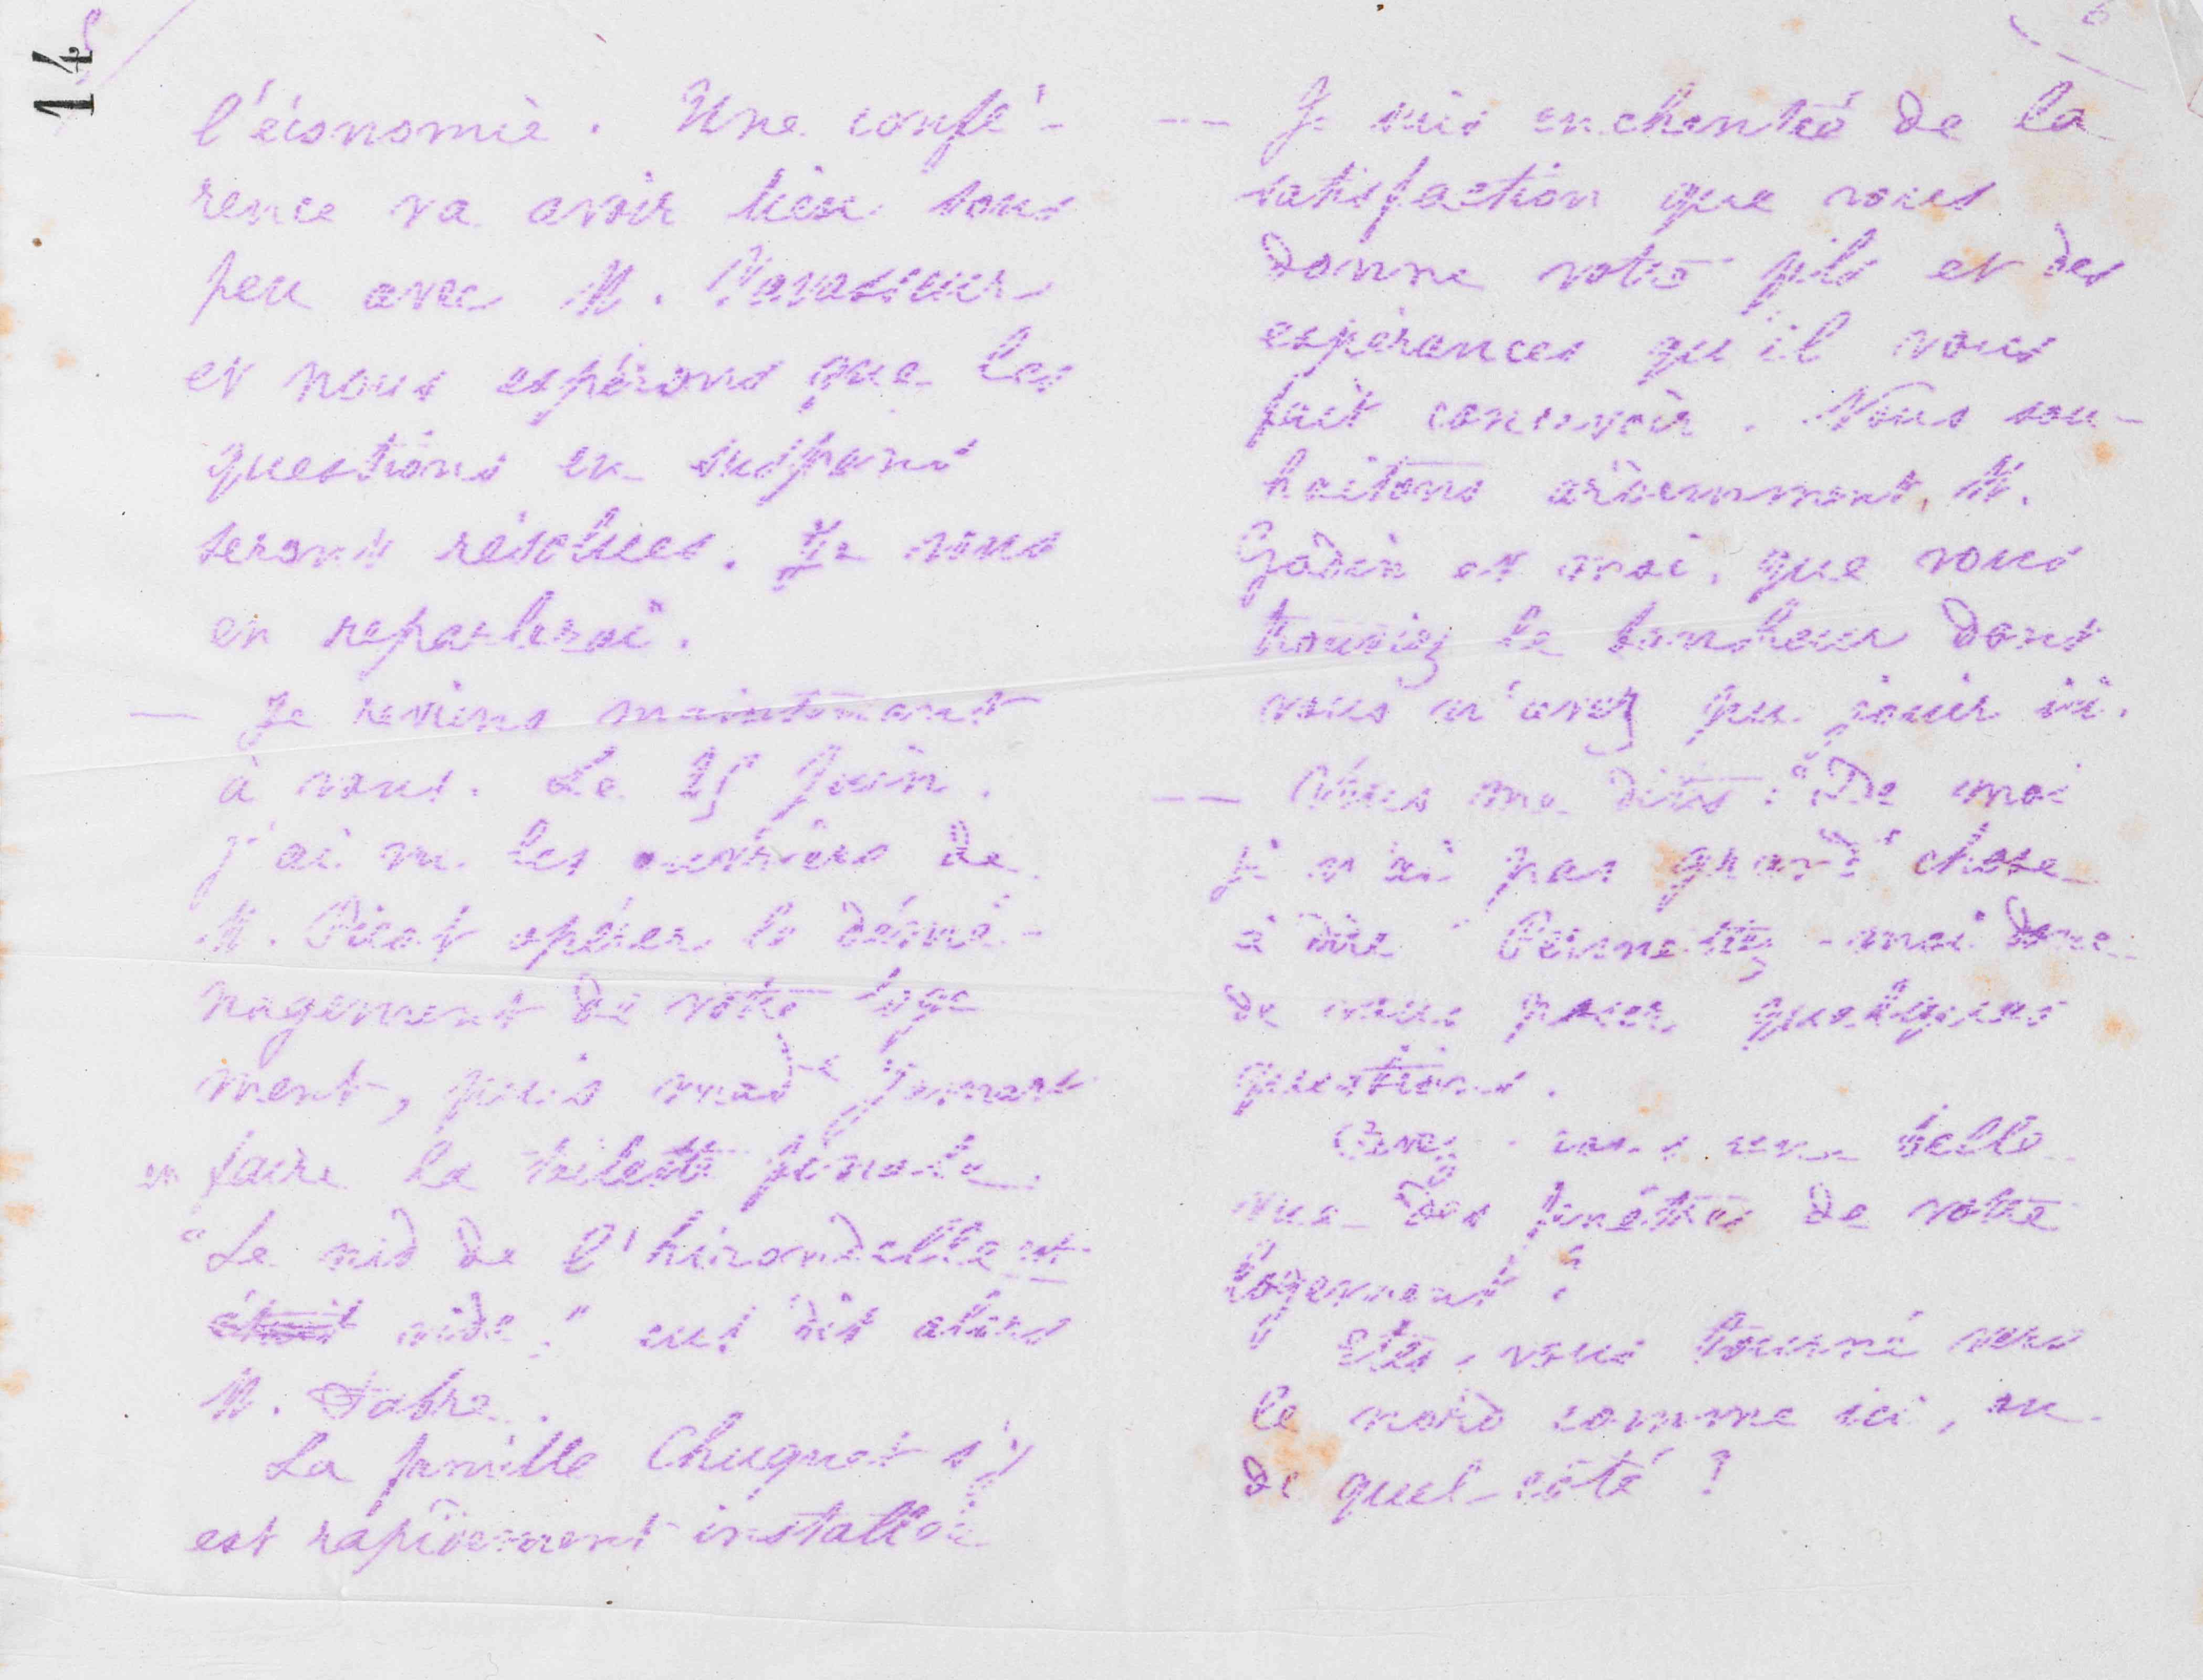 14
5
l'économie. Une confé-
rence va avoir lieu sous
peu avec M. Vavasseur
et nous espérons que les
questions en suspens
seront résolues. Je vous
en reparlerai.
— Je reviens maintenant
à vous. Le 25 Juin.
j'ai vu les ouvriers de
M. Picot opérer le démé-
nagement de votre loge
ment, puis mad^e
en faire la toilette finale.
"Le nid de l'hirondelle est
était vide;" eut dit alors
M. Fabre.
La famille Chuquet s'y
est rapidement installée
6
— Je suis enchantée de la
satisfaction que vous
donne votre fils et des
espérances qu'il vous
fait concevoir. Nous sou-
haitons ardemment, M.
Godin et moi, que vous
trouviez le bonheur dont
vous n'avez pu jouir ici.
— Vous me dites: "De moi
je n'ai pas grand'chose
à dire" Permettez-moi donc
de vous poser quelques
questions.
Avez-vous une belle
vue des fenêtres de votre
logement?
Etes-vous tourné vers
le nord comme ici, ou
de quel côté?